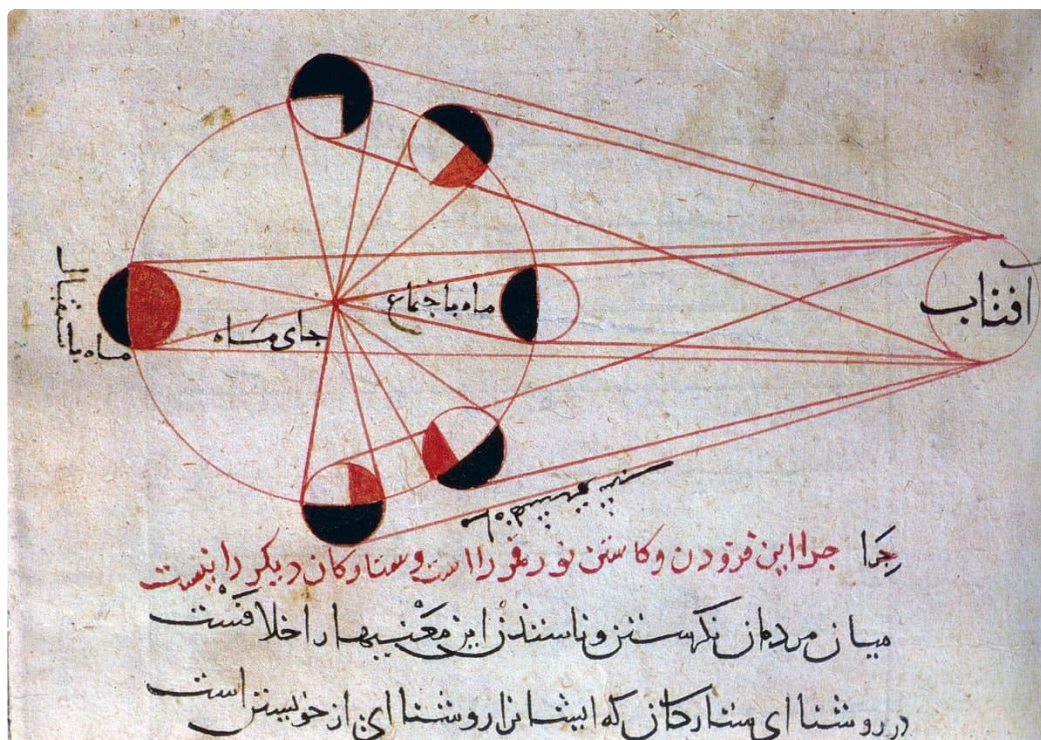 آفتاب
ماه باجتماع
جای ماه
ماه باستقبال
جرا جرا این فزودن وکاستن نور قمر را است وستارکان دیکر را نیست
میان مردمان نکرستن ودانستن این معنیها را خلافست
در روشنا ای ستارکان که ایشانرا روشنا ای از خویشتن است